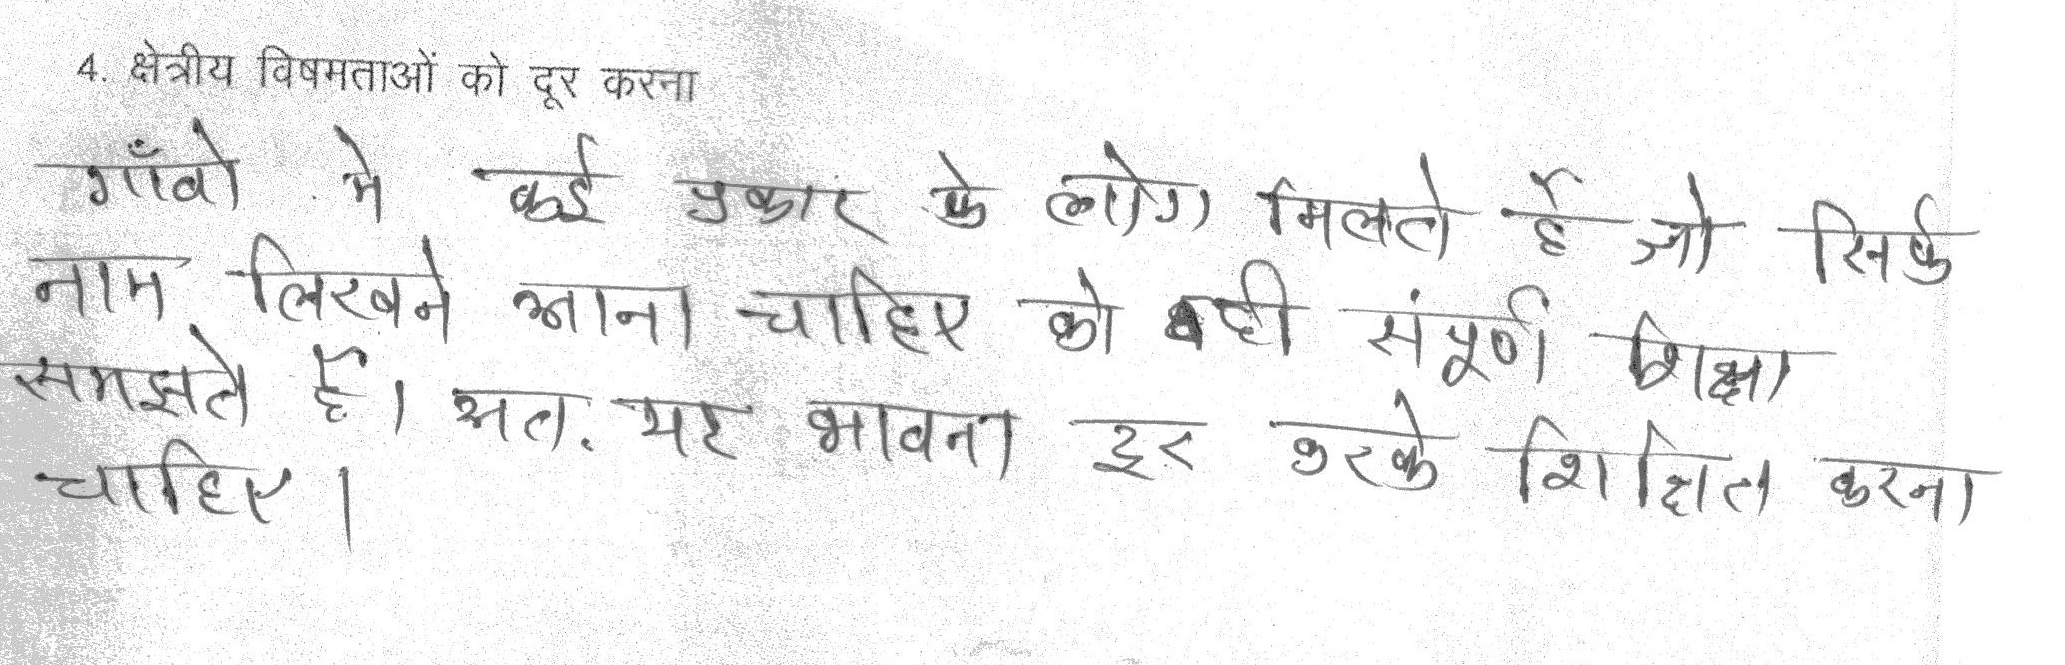 4. क्षेत्रीय विषमताओं को दूर करना
गाँवो मे कई प्रकार के लोग मिलते है जो सिर्फ
नाम लिखने आना चाहिए को ही संपूर्ण शिक्षा
समझते है। अत. यह भावना दूर करके शिक्षित करना
चाहिए।